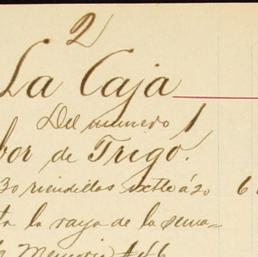 2
La Caja
Del numero 1
bor de Trigo.
30 riendillas ixtle á 20 6
ta la raya de la sema-
Memoria #46